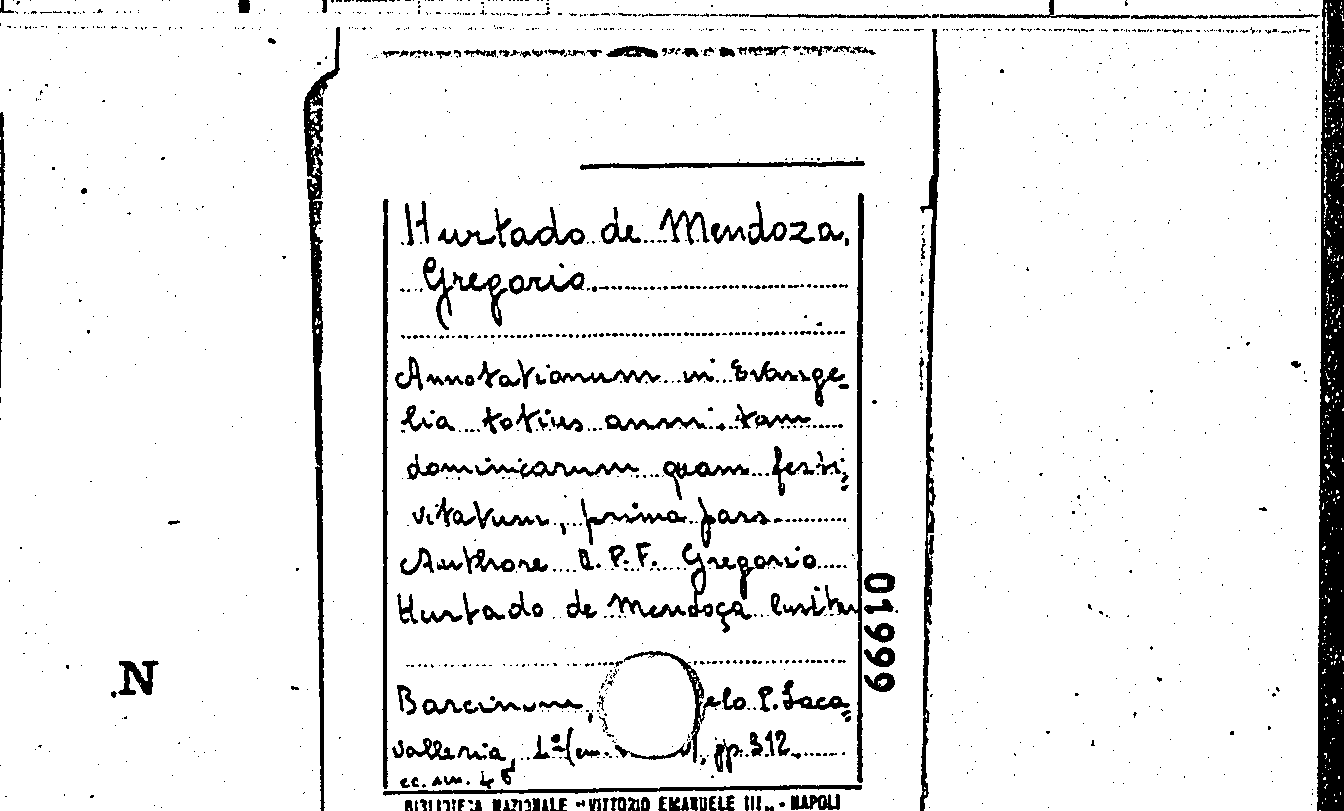 Hurtado de Mendoza,
Gregorio.
Annotationum in Evange=
lia totius anni, tam
dominicarum quam festi=
vitatum, prima pars.
Authore R. P. F. Gregorio
Hurtado de Mendoça lusita
Barcinone, elo P. Laca=
valleria, pp. 312.
01999
N
BIBLIOTECA NAZIONALE "VITTORIO EMANUELE III" - NAPOLI